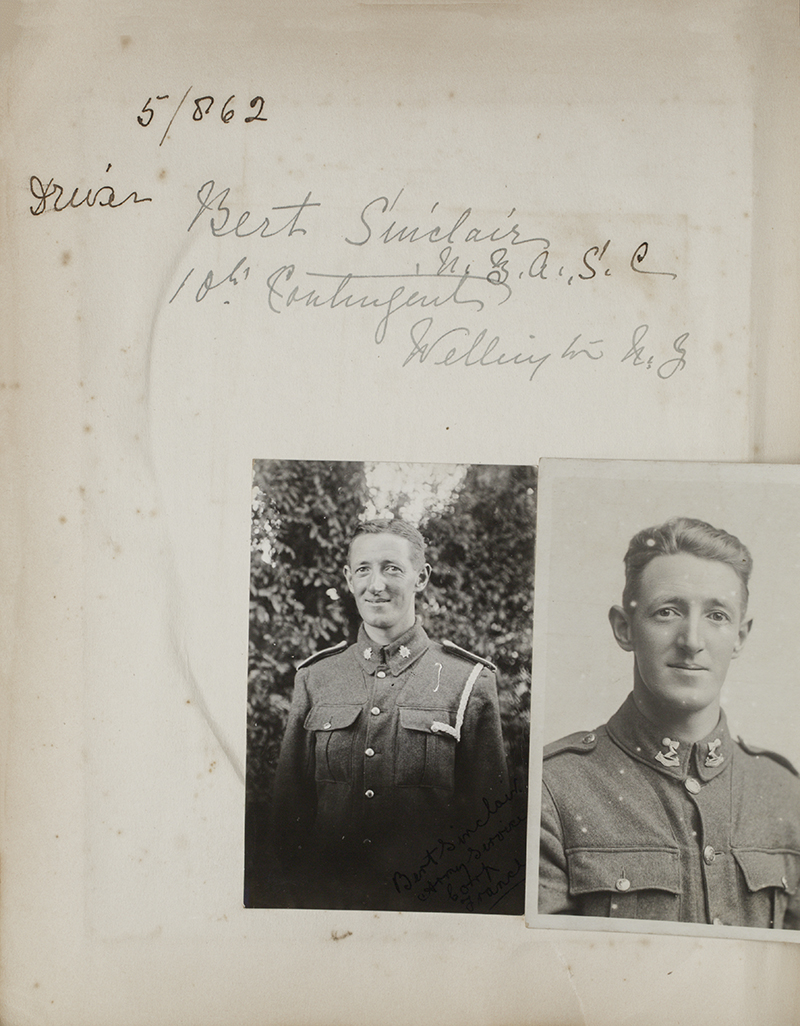 5/862
Driver Bert Sinclair
N.Z.A.,S.C
10th Contingent
Wellington N.Z
Bert Sinclair
Army Service
Corp
France